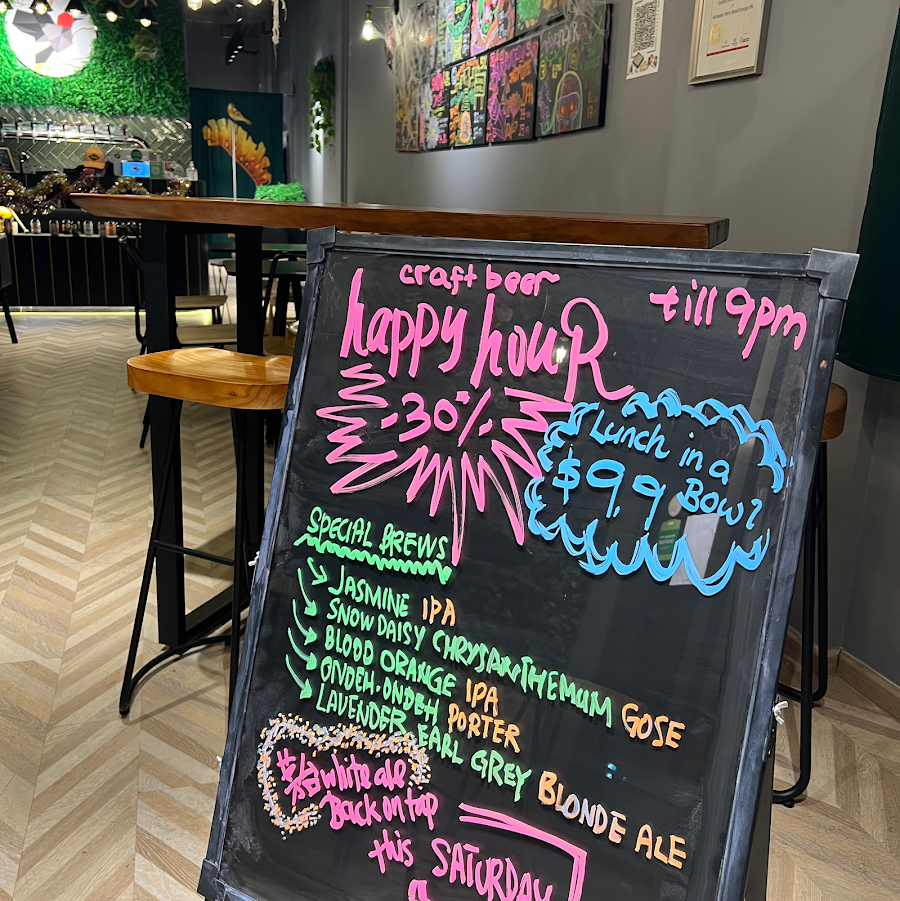 craft beer
happy houR
till 9pm
-30%
Lunch in a
$9.9 Bowl
SPECIAL BREWS
JASMINE IPA
SNOW DAISY CHRYSANTHEMUM GOSE
BLOOD ORANGE IPA
ONDEH-ONDEH PORTER
LAVENDER EARL GREY BLONDE ALE
white ale
Back on tap
this SATURDAY